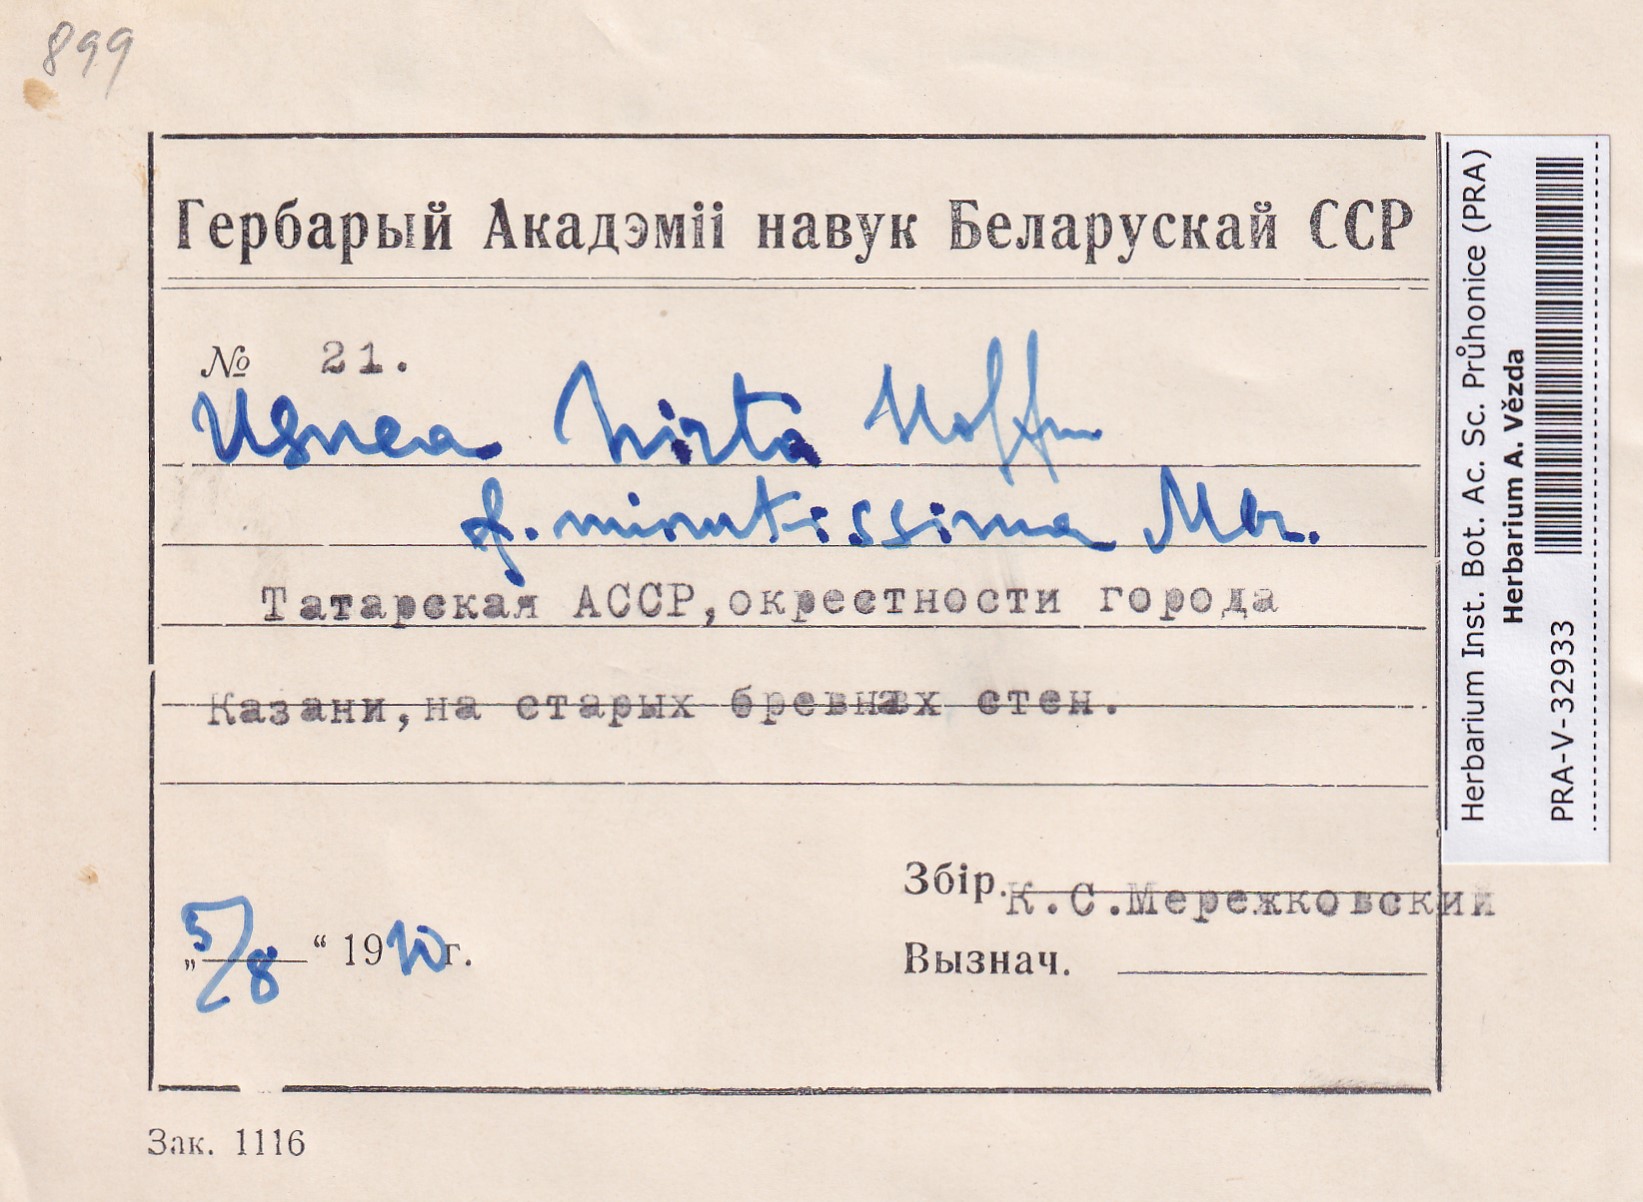 899
Гербарый Акадэміі навук Беларускай ССР
№ 21.
Usnea hirta Hoffm
f. minutissima Mer.
Татарская АССР, окрестности города
Казани, на старых бревнах стен.
Збір. К.С.Мережковский
„5/8“ 1910г.
Вызнач.
Зак. 1116
Herbarium Inst. Bot. Ac. Sc. Průhonice (PRA)
Herbarium A. Vězda
PRA-V-32933